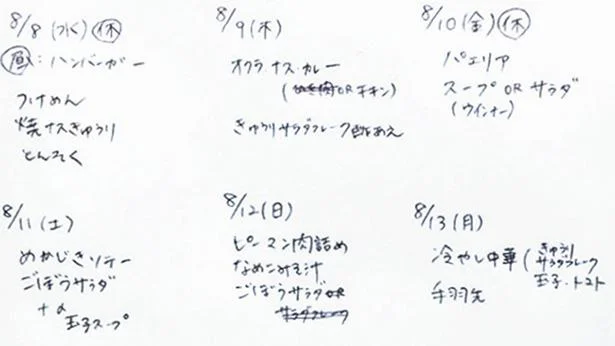 8/8(水)休
昼:ハンバーガー
つけめん
焼ナスきゅうり
とんそく
8/9(木)
オクラナス・カレー
(ひき肉ORチキン)
きゅうりサラダフレーク酢あえ
8/10(金)休
パエリア
スープORサラダ
(ウインナー)
8/11(土)
めかじきソテー
ごぼうサラダ
玉子スープ
8/12(日)
ピーマン肉詰め
なめこみそ汁
ごぼうサラダOR
サラダフレーク
8/13(月)
冷やし中華(きゅうり
サラダフレーク
玉子・トマト
手羽先